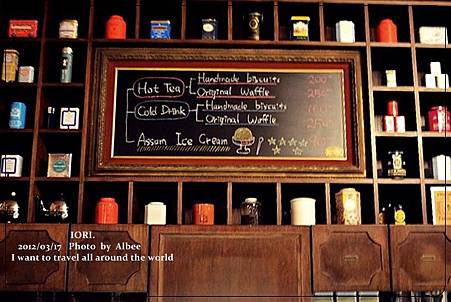 Handmade biscuits 200
Hot Tea
Original Waffle 250
Cold Drink
Handmade biscuits
Original Waffle
Assam Ice Cream
IORI.
2012/03/17 Photo by Albee
I want to travel all around the world